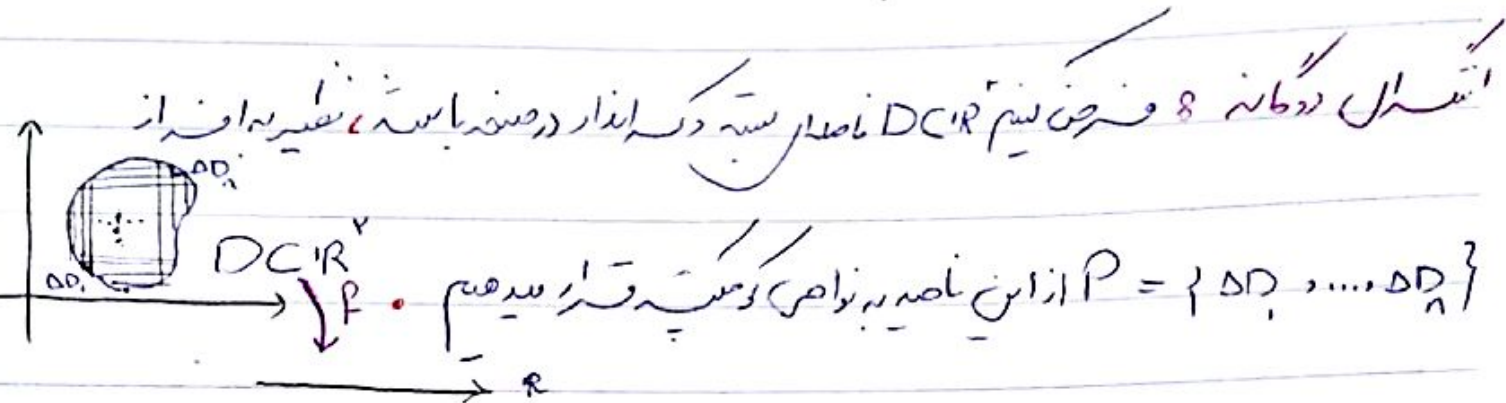 انتگرال دوگانه : فرض کنیم D⊂ℝ² ناحیه‌ای بسته و کراندار در صفحه باشد، نظیر به افراز
P = { ΔD₁ , ... , ΔDₙ } از این ناحیه به نواحی کوچکتر قرار میدهیم .
ΔDₙ
ΔD₁
D⊂ℝ²
f
R